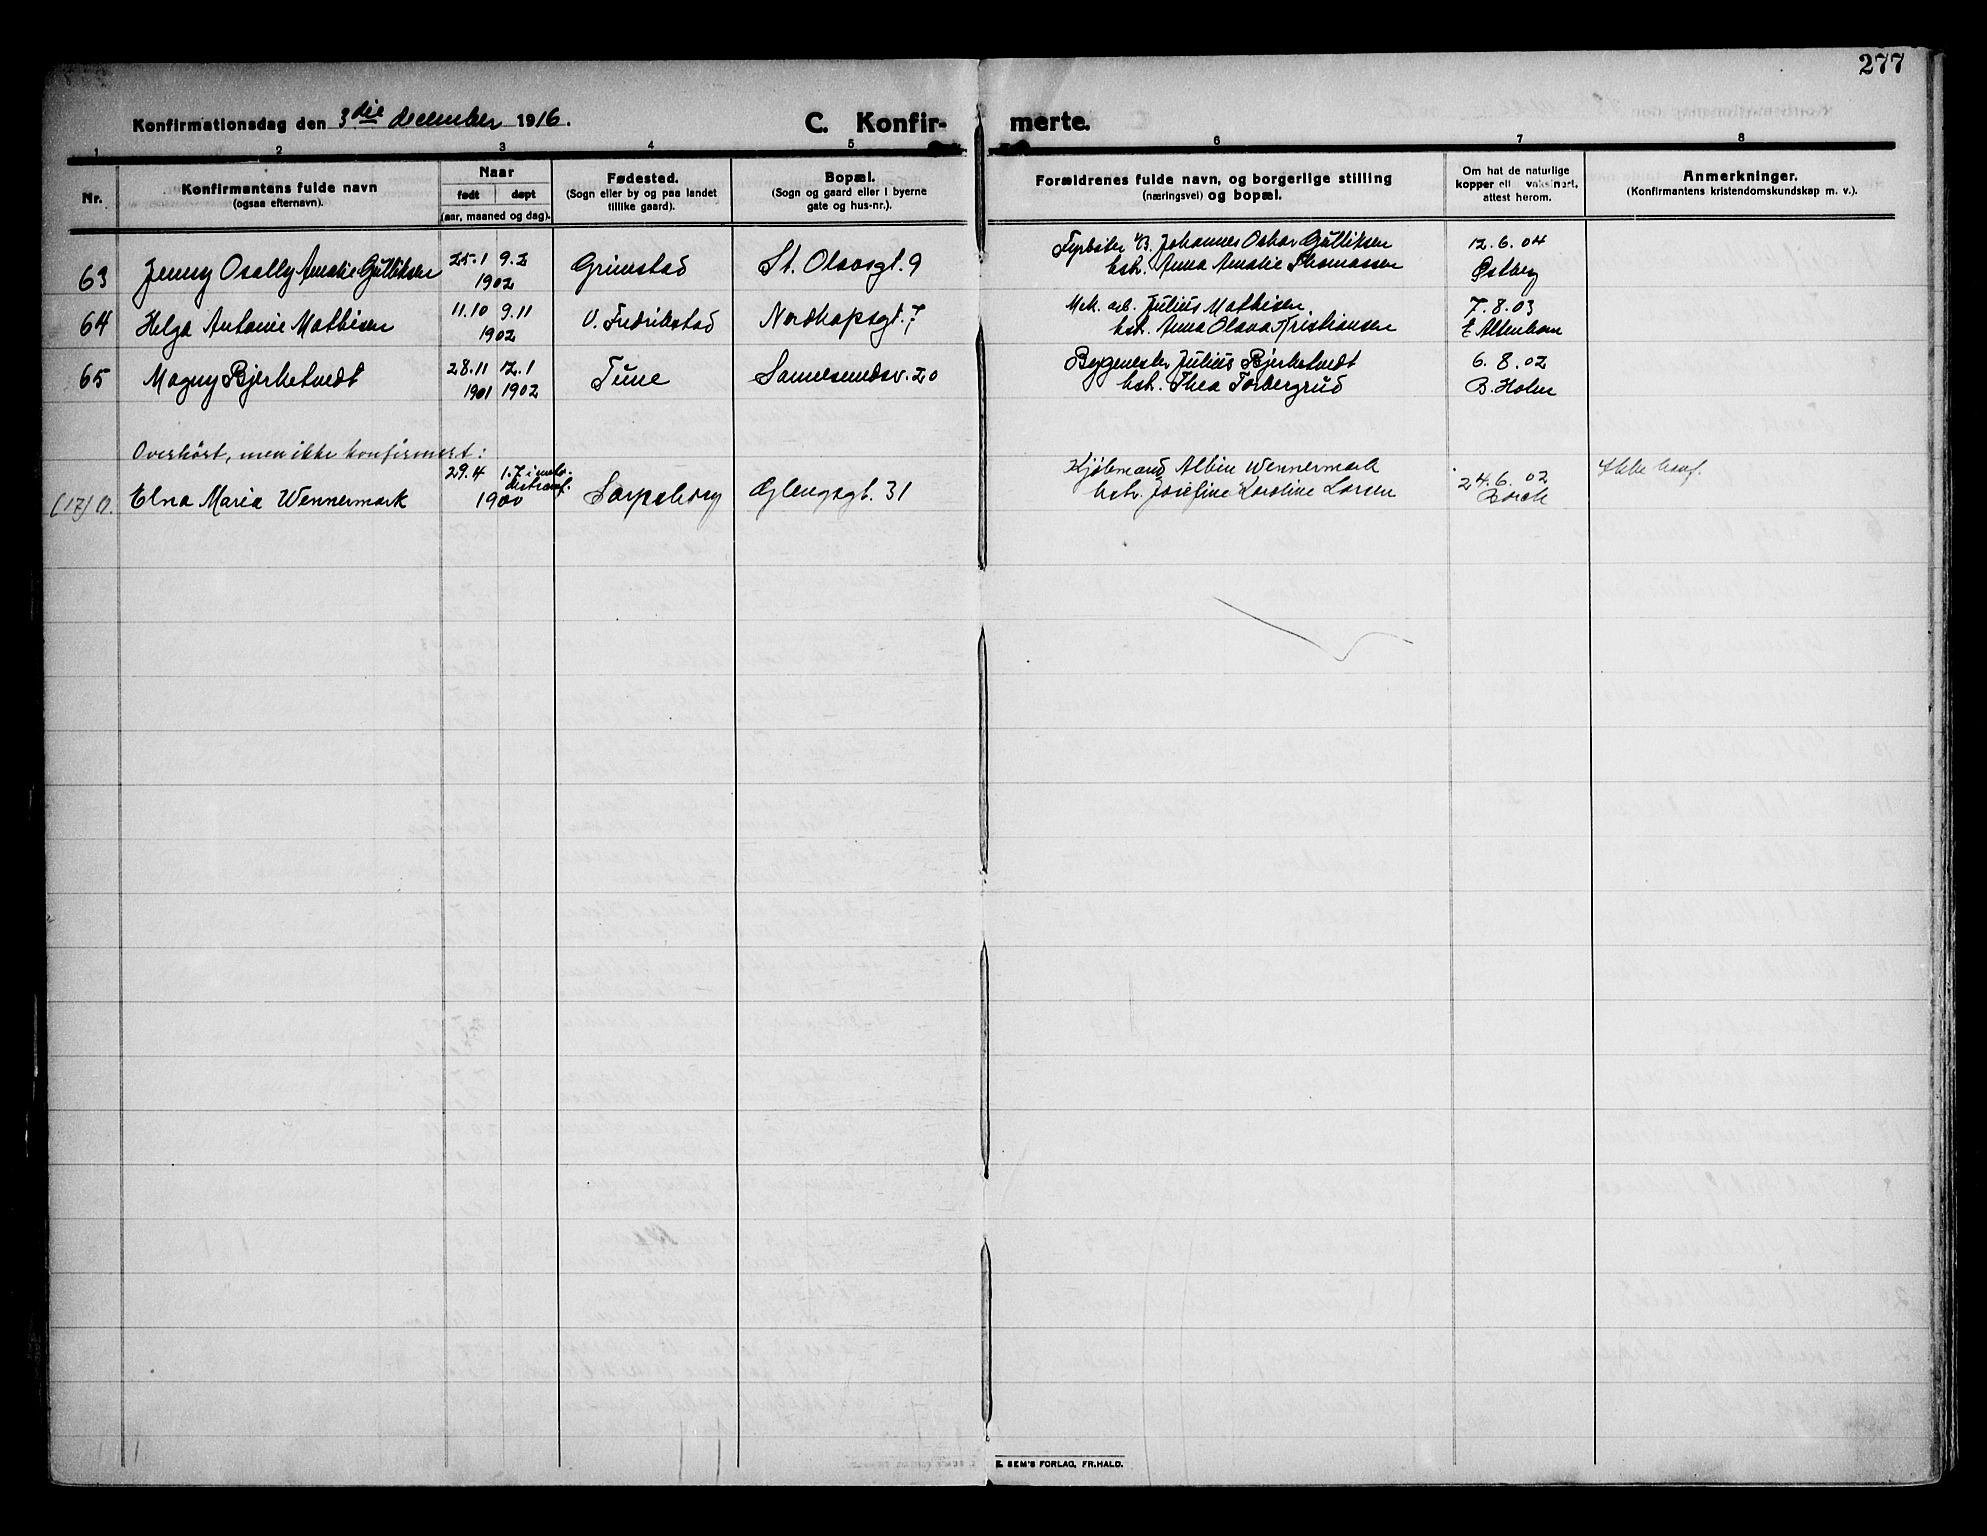 277
Konfirmationsdag den 3die december 1916.
C. Konfir- merte.
1 2 3 4 5 6 7 8
Nr.
Konfirmantens fulde navn
(ogsaa efternavn).
Naar
født døpt
(aar, maaned og dag).
Fødested.
(Sogn eller by og paa landet
tillike gaard).
Bopæl.
(Sogn og gaard eller i byerne
gate og hus-nr.).
Forældrenes fulde navn, og borgerlige stilling
(næringsvei) og bopæl.
Om hat de naturlige
kopper ell. vaksinert,
attest herom.
Anmerkninger.
(Konfirmantens kristendomskundskap m. v.).
63 Jenny Osally Amalie Gulliksen 25.1 9.2 1902 Grimstad St. Olavsgt. 9
Fyrbøter Johannes Oskar Gulliksen 12.6.04
hstr. Anna Amalie Thomassen Østberg
64 Helga Antonie Mathisen 11.10 9.11 1902 V. Fredrikstad Nordkapsgt. 7
Mek. arb. Julius Mathisen 7.8.03
hstr. Anna Olava Kristiansen
65 Magny Bjerketvedt 28.11 1901 12.1 1902 Tune Sannesundsv. 20
Bygmester Julius Bjerketvedt 6.8.02
hstr. Thea Torbergrud B. Holm
Overhørt, men ikke konfirmert:
(17) Elna Maria Wennermark 29.4 1.7 1900 Sarpsborg Glengsgt. 31
Kjøbmand Albin Wennermark 24.6.02 Ikke konf.
hstr. Josefine Karoline Larsen Borch
E. SEM'S FORLAG, FR.HALD.